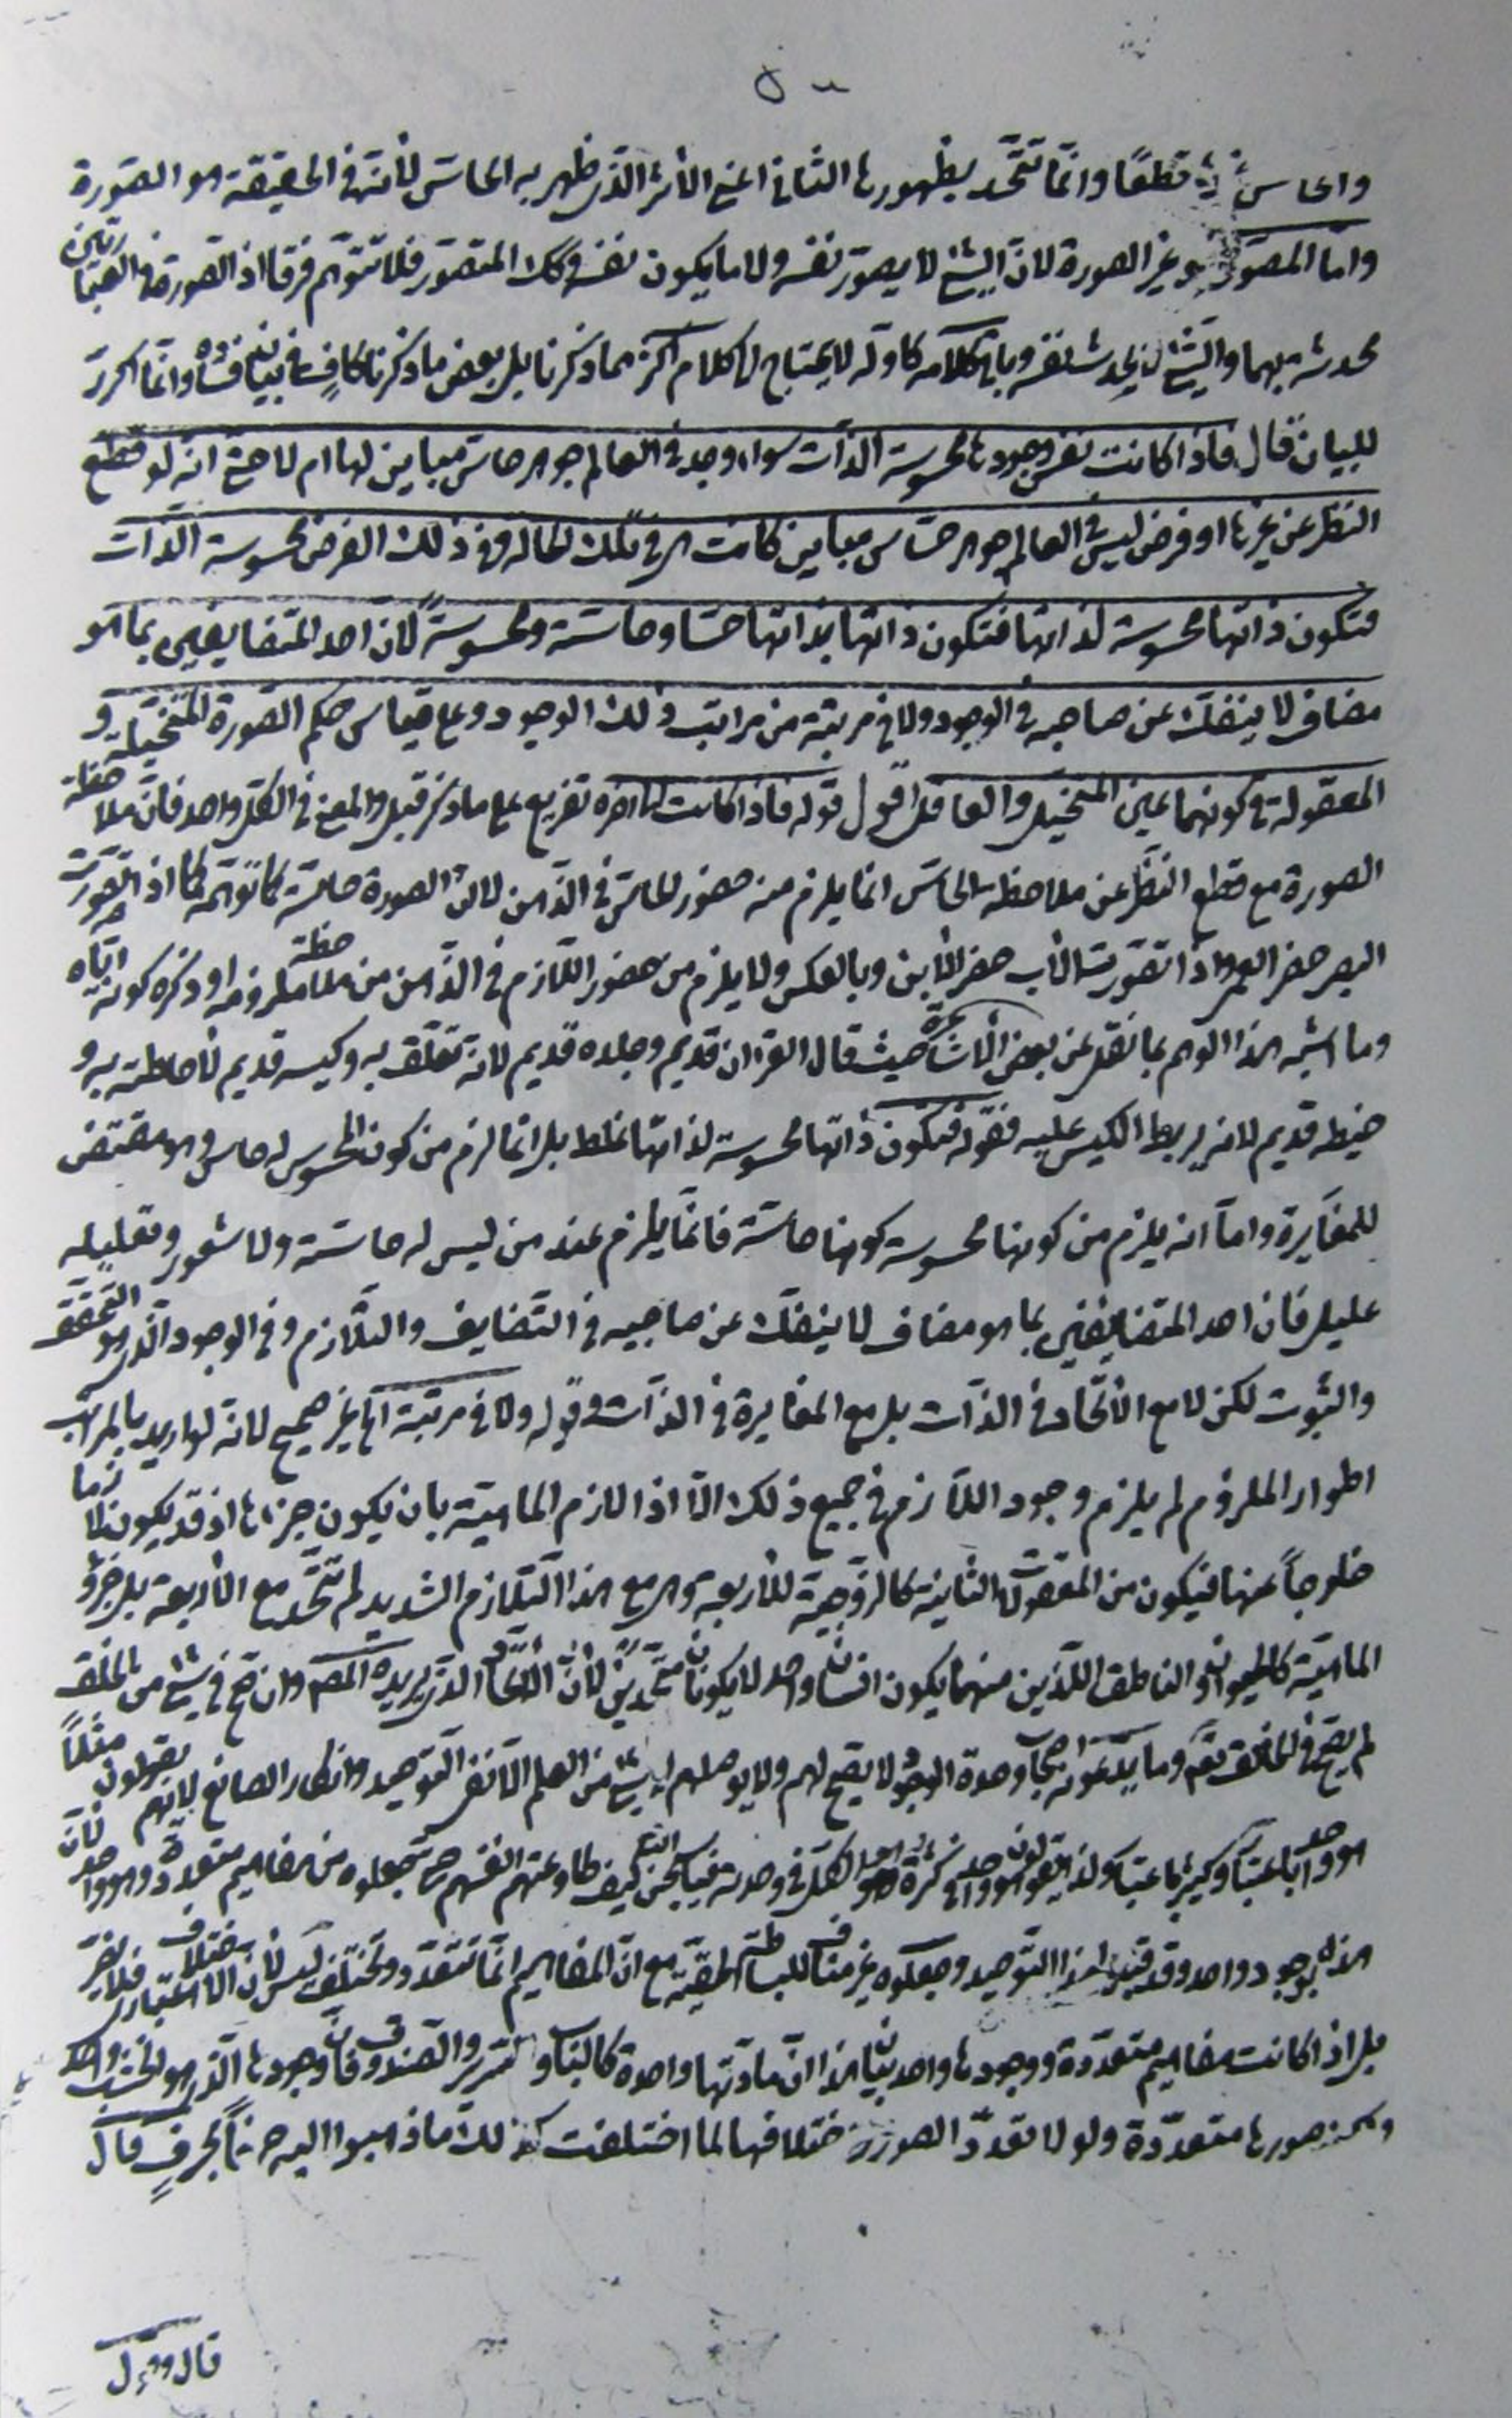 والحاس لا قطعًا وانما تتحد بظهورها الثانى اعنى الأثر الذى ظهر به الحاس لأنه فى الحقيقة هو الصورة
واما المصور هو غير الصورة لان الشئ لا يصور نفسه ولا ما يكون نفسه وكك المتصور فلا تتوهم فرقا اذ الصورة فى العبارتين
محدثة بهما والشئ لا يحدث نفسه وباقى كلامه كاوله لا يحتاج الى كلام اكثر مما ذكرنا بل بعض ما ذكرنا كافٍ فى بيان فساده وانما اكرر
للبيان قال فاذا كانت نفس وجودها محسوسة الذات سواء وجد فى العالم جوهر حاس مباين لها ام لا حتى انه لو قطع
النظر عن غيرها او فرض ليس فى العالم جوهر حساس مباين كانت هى فى تلك الحالة وفى ذلك الفرض محسوسة الذات
فتكون ذاتها محسوسة لذاتها فتكون ذاتها بذاتها حسا وحاسة ومحسوسة لأن احد المتضايفين بما هو
مضاف لا ينفك عن صاحبه فى الوجود ولا فى مرتبة من مراتب ذلك الوجود وعلى قياس حكم الصورة المتخيلة و
المعقولة فى كونهما عين المتخيل والعاقل اقول قوله فاذا كانت الى اخره تفريع على ما ذكر قبل والمعنى فى الكل واحد فان ملاحظة
الصورة مع قطع النظر عن ملاحظة الحاس انما يلزم منه حضور الحاس فى الذهن لا ان الصورة حاسة كما توهمه كما اذا تصورت
البصر حضر العمى واذا تصورت الأب حضر الأبن وبالعكس ولا يلزم من حضور اللازم فى الذهن من ملاحظة ملزومه او ذكره كونه اياه
وما اشبه هذا الوهم بما نقل عن بعض الأشاعرة حيث قال القرءان قديم وجلده قديم لانه تعلق به وكيسه قديم لأحاطته به و
خيطه قديم لانه يربط الكيس عليه فقوله فتكون ذاتها محسوسة لذاتها غلط بل انما لزم من كون المحسوس له حاس وهو مقتض
للمغايرة واما انه يلزم من كونها محسوسة كونها حاسة فانما يلزم عند من ليس له حاسة ولا شعور وتعليله
عليل فان احد المتضايفين بما هو مضاف لا ينفك عن صاحبه فى التضايف والتلازم وفى الوجود الذى هو التحقق
والثبوت لكن لا مع الأتحاد فى الذات بل مع المغايرة فى الذات وقوله ولا فى مرتبة الخ غير صحيح لانه لو اريد بالمراتب
اطوار الملزوم لم يلزم وجود اللازم فى جميع ذلك الا اذا لازم الماهية بان يكون جزءها اذ قد يكون لازما
خارجاً عنها فيكون من المعقولات الثانية كالزوجية للأربعة وهى مع هذا التلازم الشديد لم تتحد مع الأربعة بل جزؤ
الماهية كالحيوان والناطق اللذين منهما يكون انسان واحد لا يكونان متحدين لأن الأتحاد الذى يريده المصنف وان صح فى شئ من الخلق
لم يصح فى الخالق تعالى وما يدعونه اصحاب وحدة الوجود لا يصح لهم ولا يوصلهم الى شئ من العلم الا نفى التوحيد وانكار الصانع لانهم يقولون مثلاً
هو واحد باعتبار وكثير باعتبار ولذا يقولون هو الواحد فى كثرة هو الكل فى وحدته كيف طاوعتهم انفسهم حتى يجعلوه من مفاهيم متعددة وهو واحد لأن
هذه بوجود واحد وقد قبلوا هذا التوحيد وجعلوه غير مناف للبساطة الحقية مع ان المفاهيم انما تتعدد وتختلف ليس لأن الاختلاف الاعتبار فلا يضر
بل اذا كانت مفاهيم متعددة ووجودها واحد بيان هذا ان مادتها واحدة كالباب والسرير والصندوق فان وجودها الذى هو الخشب واحد
ولكن صورها متعددة ولولا تعدد الصور واختلافها لما اختلفت كذلك ما ذهبوا اليه حرفاً بحرفٍ قال
قال وقول